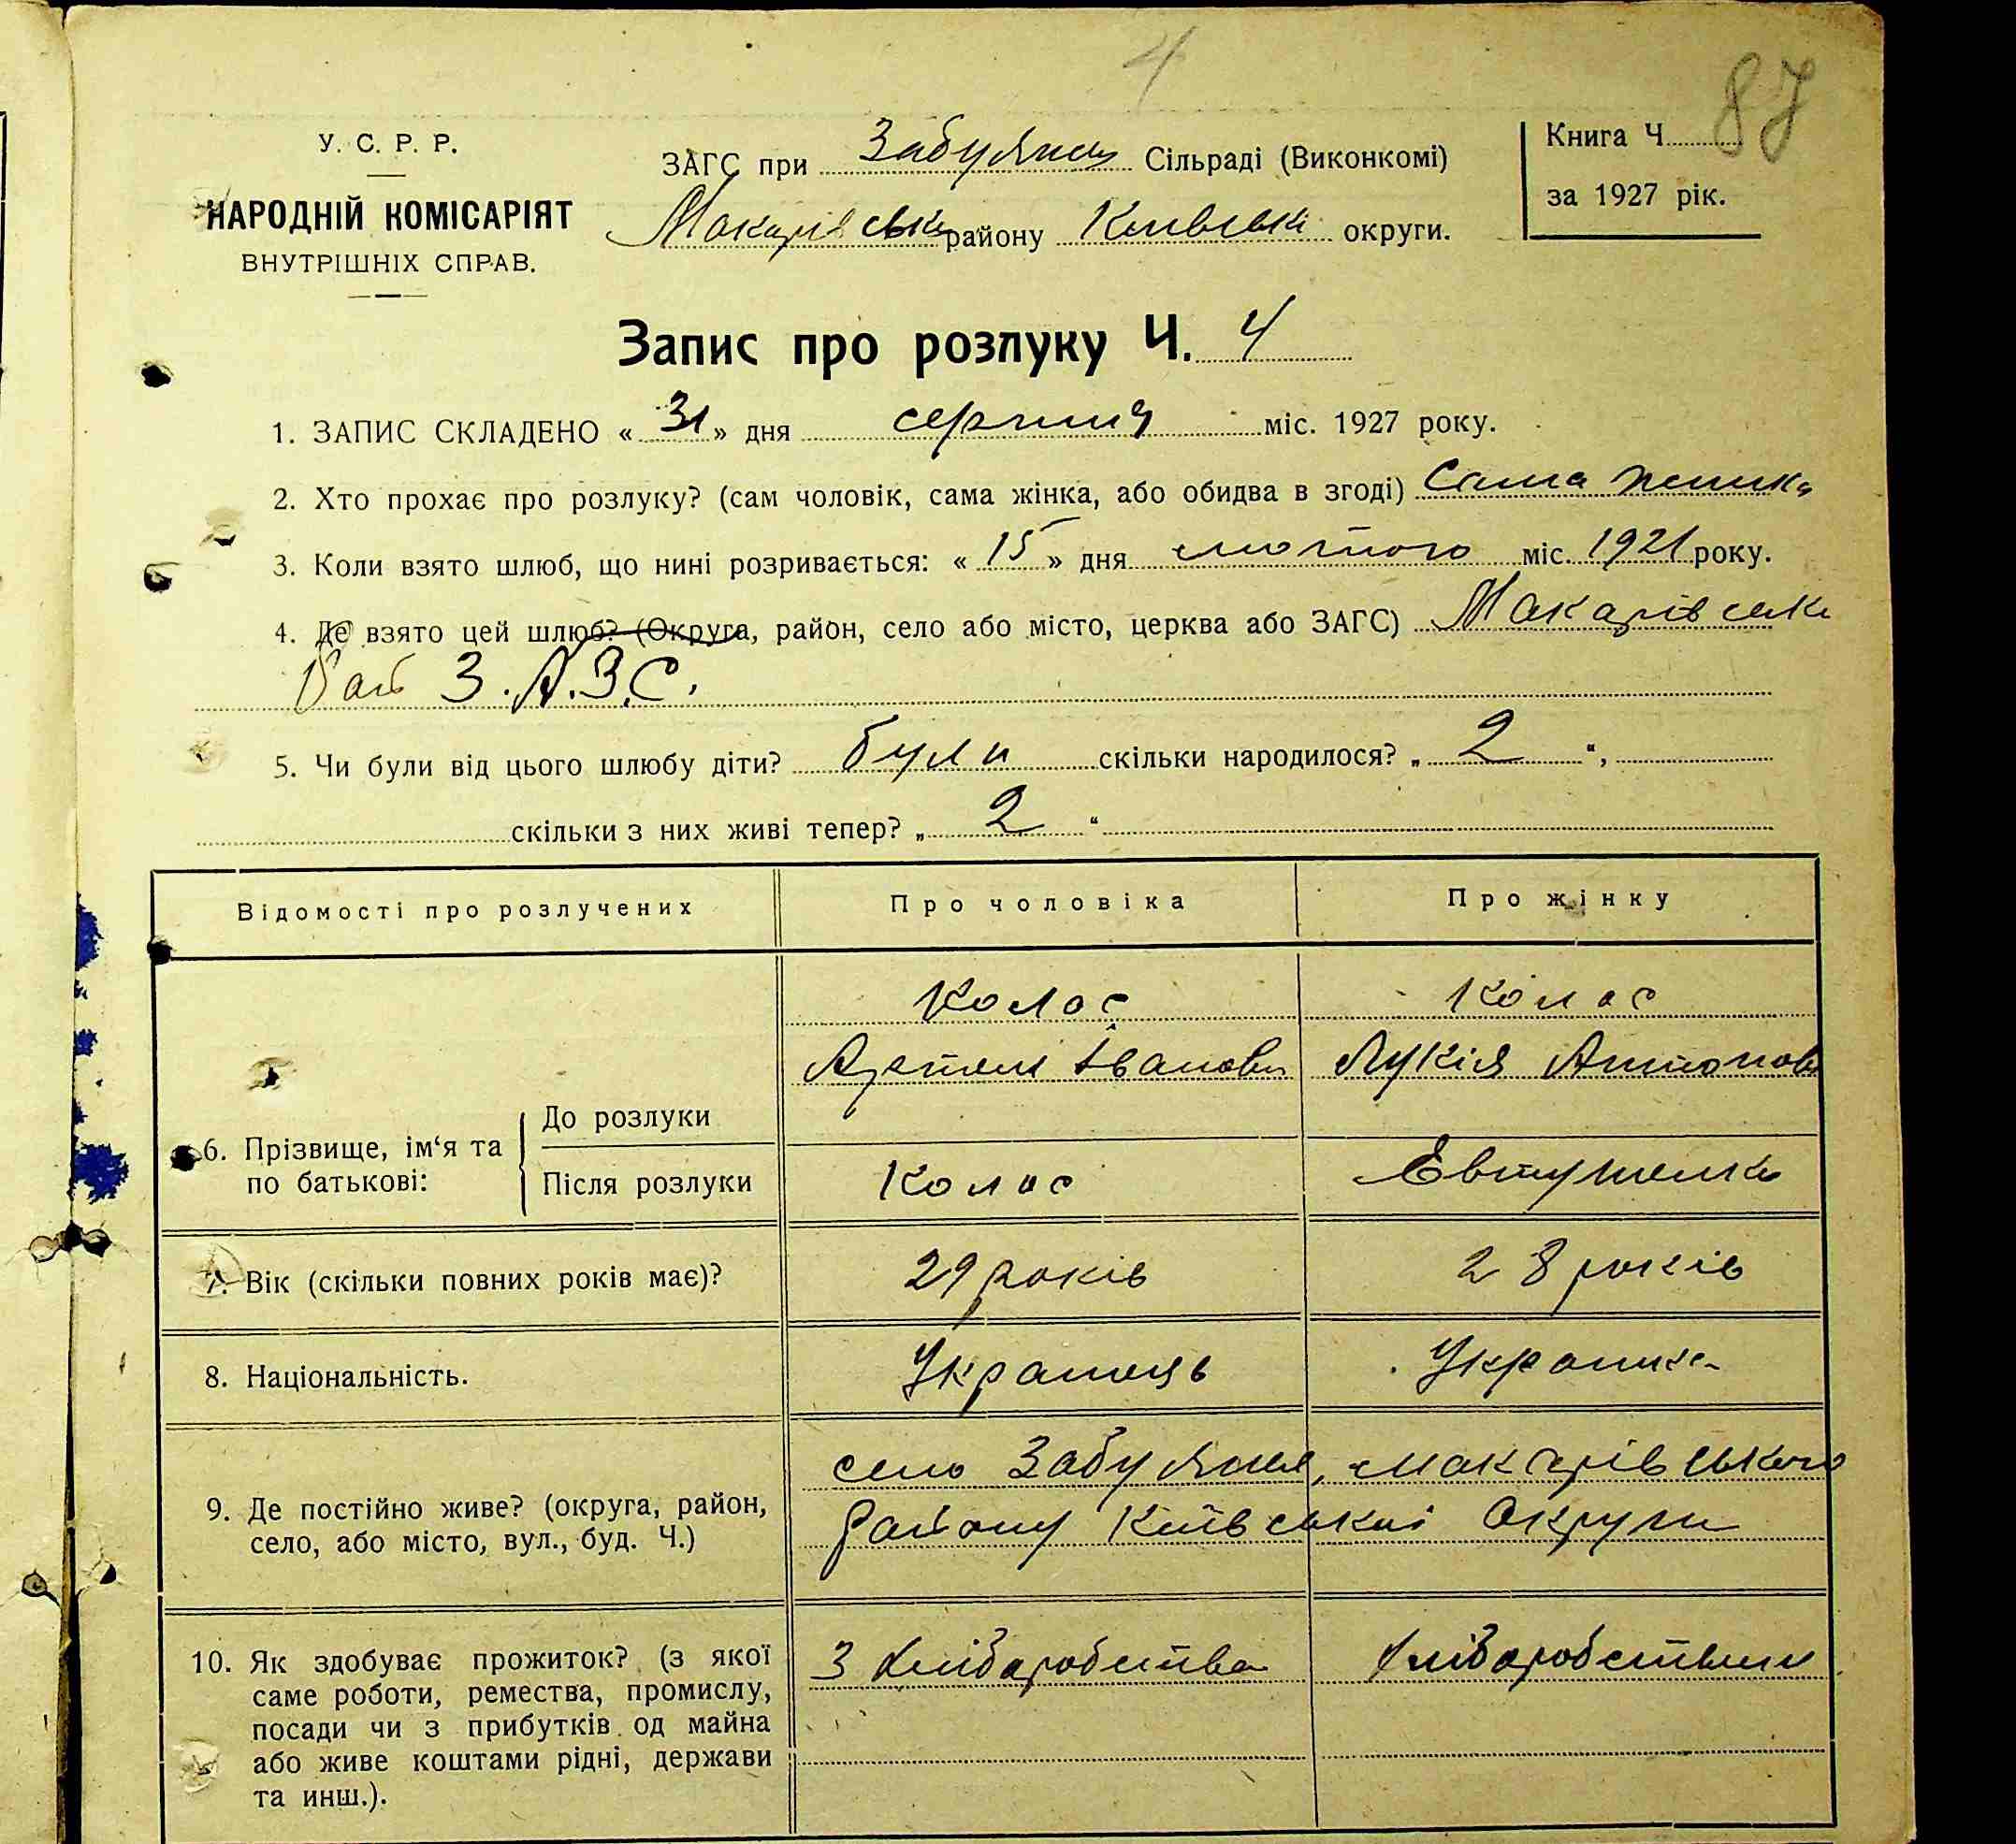 4
87
У. С. Р. Р.
НАРОДНІЙ КОМІСАРІЯТ
ВНУТРІШНІХ СПРАВ.
ЗАГС при Забуянш Сільраді (Виконкомі)
Макарівськ району Київськ округи.
Книга Ч.
за 1927 рік.
Запис про розлуку Ч. 4
1. ЗАПИС СКЛАДЕНО « 31 » дня серпня міс. 1927 року.
2. Хто прохає про розлуку? (сам чоловік, сама жінка, або обидва в згоді) Сама жінка
3. Коли взято шлюб, що нині розривається: « 15 » дня лютого міс. 1921 року.
4. Де взято цей шлюб? (Округа, район, село або місто, церква або ЗАГС) Макарівськ
Рай З.А.З.С.
5. Чи були від цього шлюбу діти? були скільки народилося? „ 2 “,
скільки з них живі тепер? „ 2 “
Відомості про розлучених
Про чоловіка
Про жінку
Колос
Колос
Артем Іванови
Лукія Антонов
6. Прізвище, ім‘я та по батькові:
До розлуки
Після розлуки
Колос
Евтушенко
7. Вік (скільки повних років має)?
29 років
28 років
8. Національність.
Українець
Українка
9. Де постійно живе? (округа, район,
село, або місто, вул., буд. Ч.)
село Забуяння, Макарівського
району Київської Округи
10. Як здобуває прожиток? (з якої
саме роботи, ремества, промислу,
посади чи з прибутків од майна
або живе коштами рідні, держави
та инш.).
З хліборобства
хліборобством